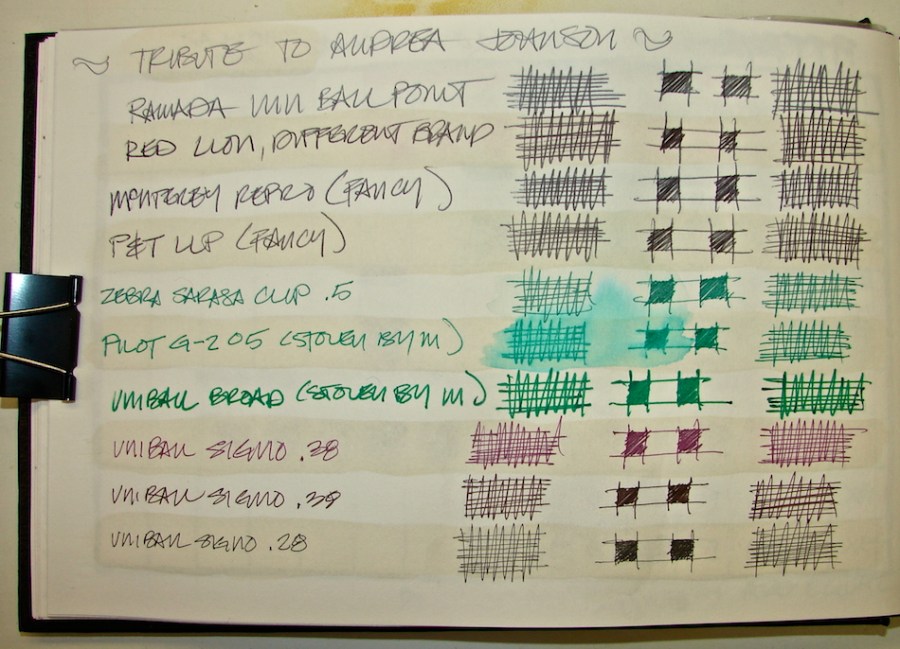 ~ TRIBUTE TO ANDREA JOHNSON ~
RAMADA INN BALL POINT
RED LION, DIFFERENT BRAND
MONTEREY REPRO (FANCY)
P&T LLP (FANCY)
ZEBRA SARASA CLIP .5
PILOT G-2 05 (STOLEN BY M)
UNIBALL BROAD (STOLEN BY M)
UNIBALL SIGNO .28
UNIBALL SIGNO .38
UNIBALL SIGNO .28